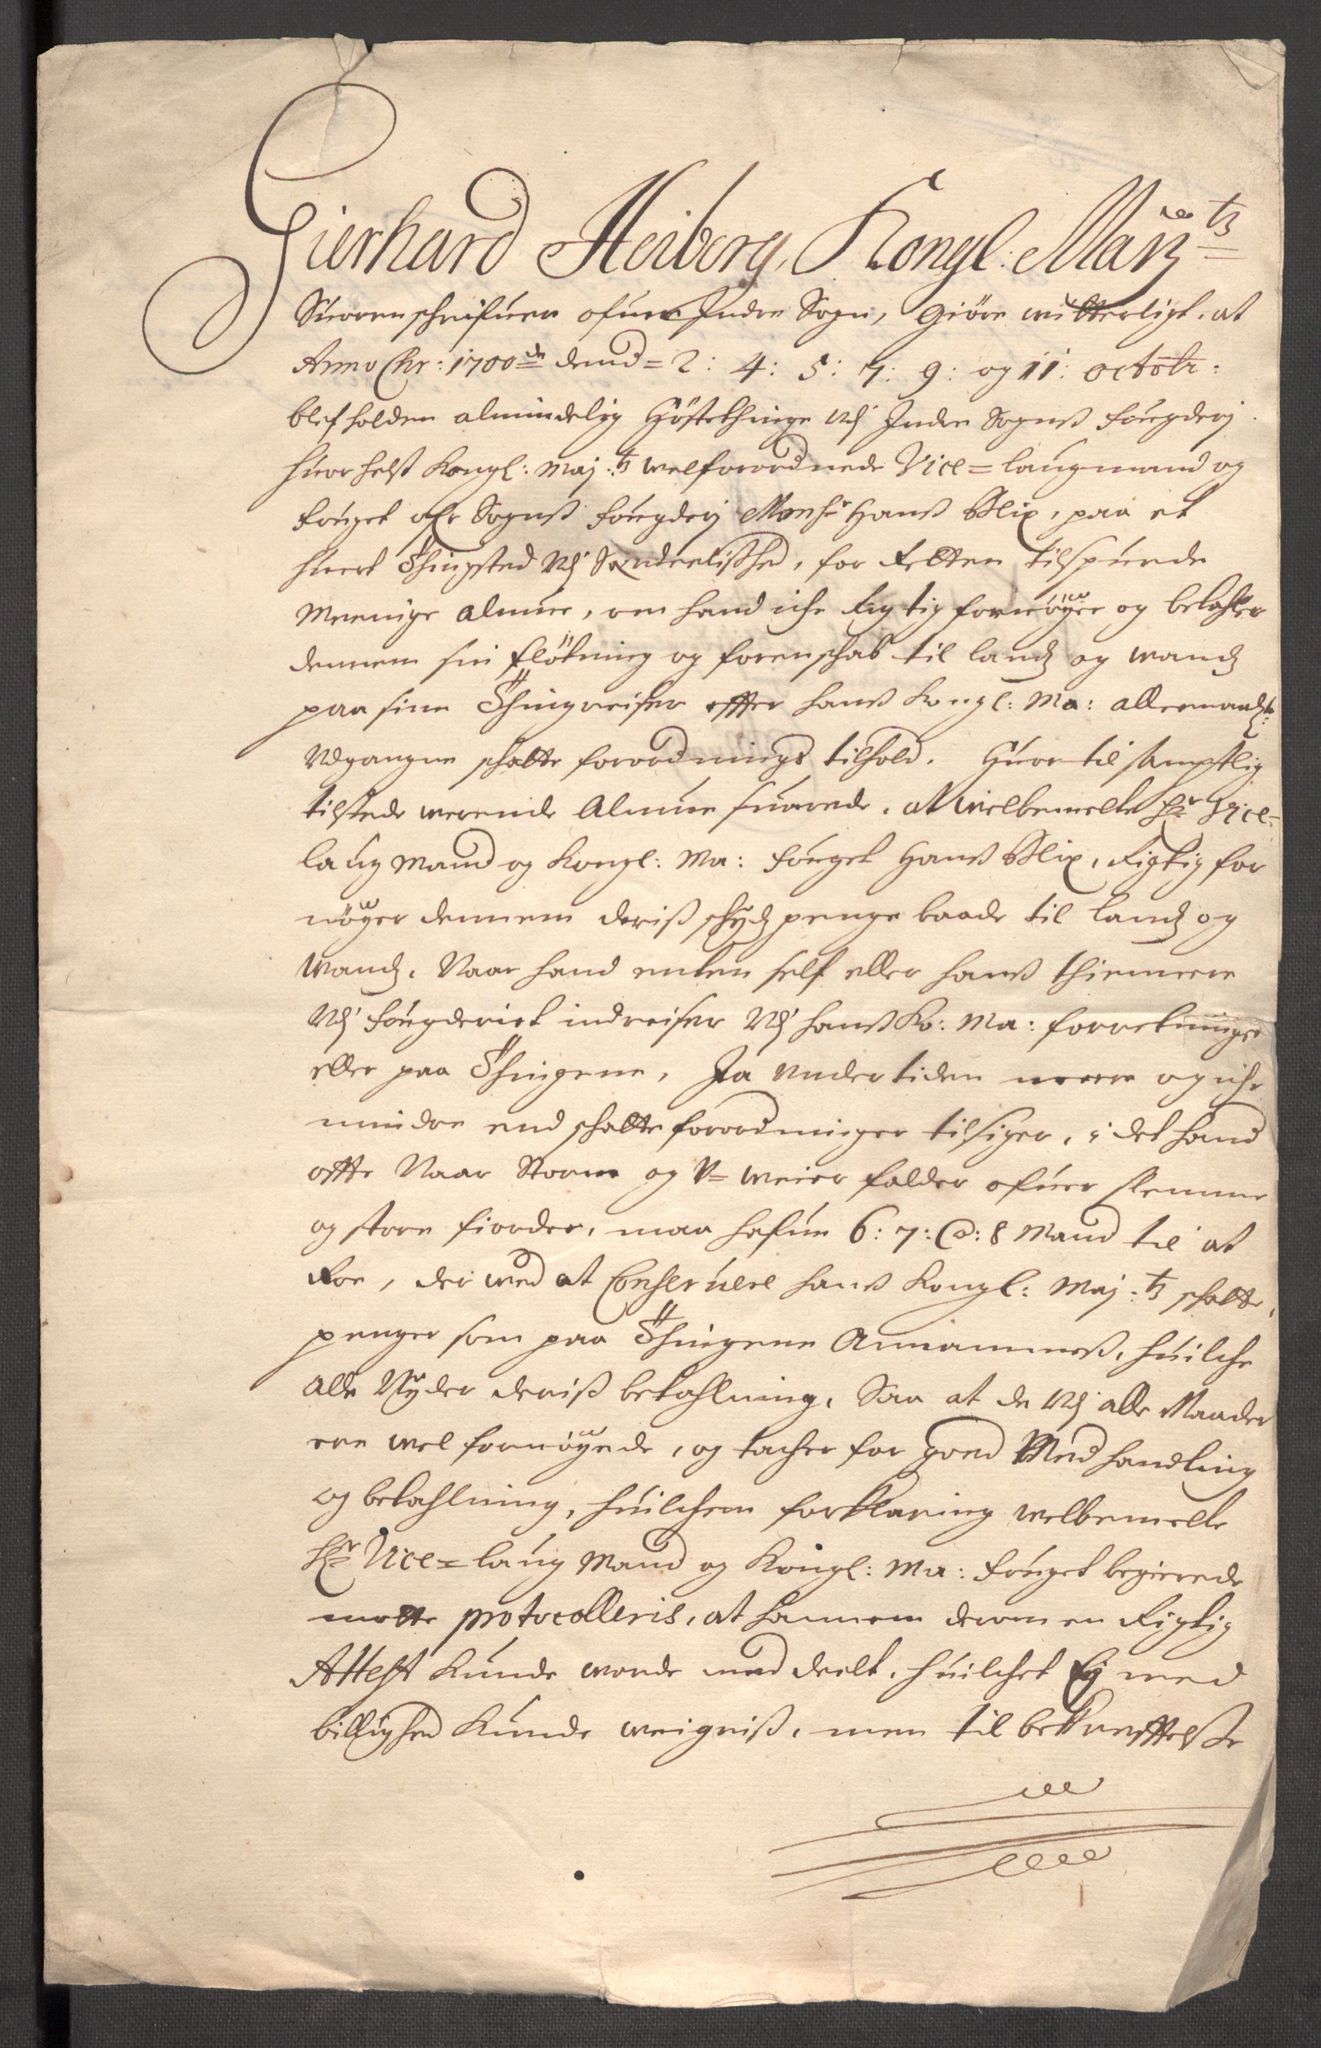 Gierhard Heiberg, Kongl: Maÿ:tz
Suorenschrifuer ofuer Indre Sogn, Giöre witterligt, at
Anno Chr: 1700de dend = 2: 4: 5: 7: 9: og 11: octobr:
blef holden almindelig Höstethinge udj Indre Sognß fougderj
huor helst Kongl: Maj:tz welforordnede Vice=laugmand og
fouget ofr Sognß fougderj Monsr Hanß Blix, paa et
huert Thingsted udj Særdeelißhed, for Retten tilspurde
Meenige almue, om hand iche Rigtig fornöyer og betahler
dennem sin flötning og forenschab til landz og wandz
paa sine Thingreiser effter hanß Kongl: Ma: allernaadste
udgangne schatte forordnings tilhold. Huor til samptlig
tilstede werende Almue suarede, at welbemelte Hr Vice=
laug Mand og Kongl: Ma: fouget Hanß Blix, Rigtig for
nöyer dennem deriß schydz penge baade til landz og
wandz, Naar hand enten self eller hanß thiennere
udj fougderiet indreiser udj hanß Ko: Ma: forretninger
eller paa Thingene, Ja under tiden meere og iche
mindre end schatte forordninger tilsiger, i det hand
offte Naar Storm og U=weier falder ofuer slemme
og store fiorder, maa hafue 6: 7: a: 8 Mand til at
Roe, der wed at Conservere hanß Kongl: Maj:tz schatte
penger som paa Thingene Annammeß, huilche
alle Nyder deriß betahlning, Saa at de udj alle Maader
ere wel fornöyede, og tacher for goed Medhandling
og betahlning, huilchen forklaring welbemelte
Hr Vice=laug Mand og Kongl: Ma: fouget begierede
motte protocolleris, at hannem derom en Rigtig
Attest Kunde worde med deelt, huilchet Ej med
billighed Kunde weigriß, men til bekrefftelße